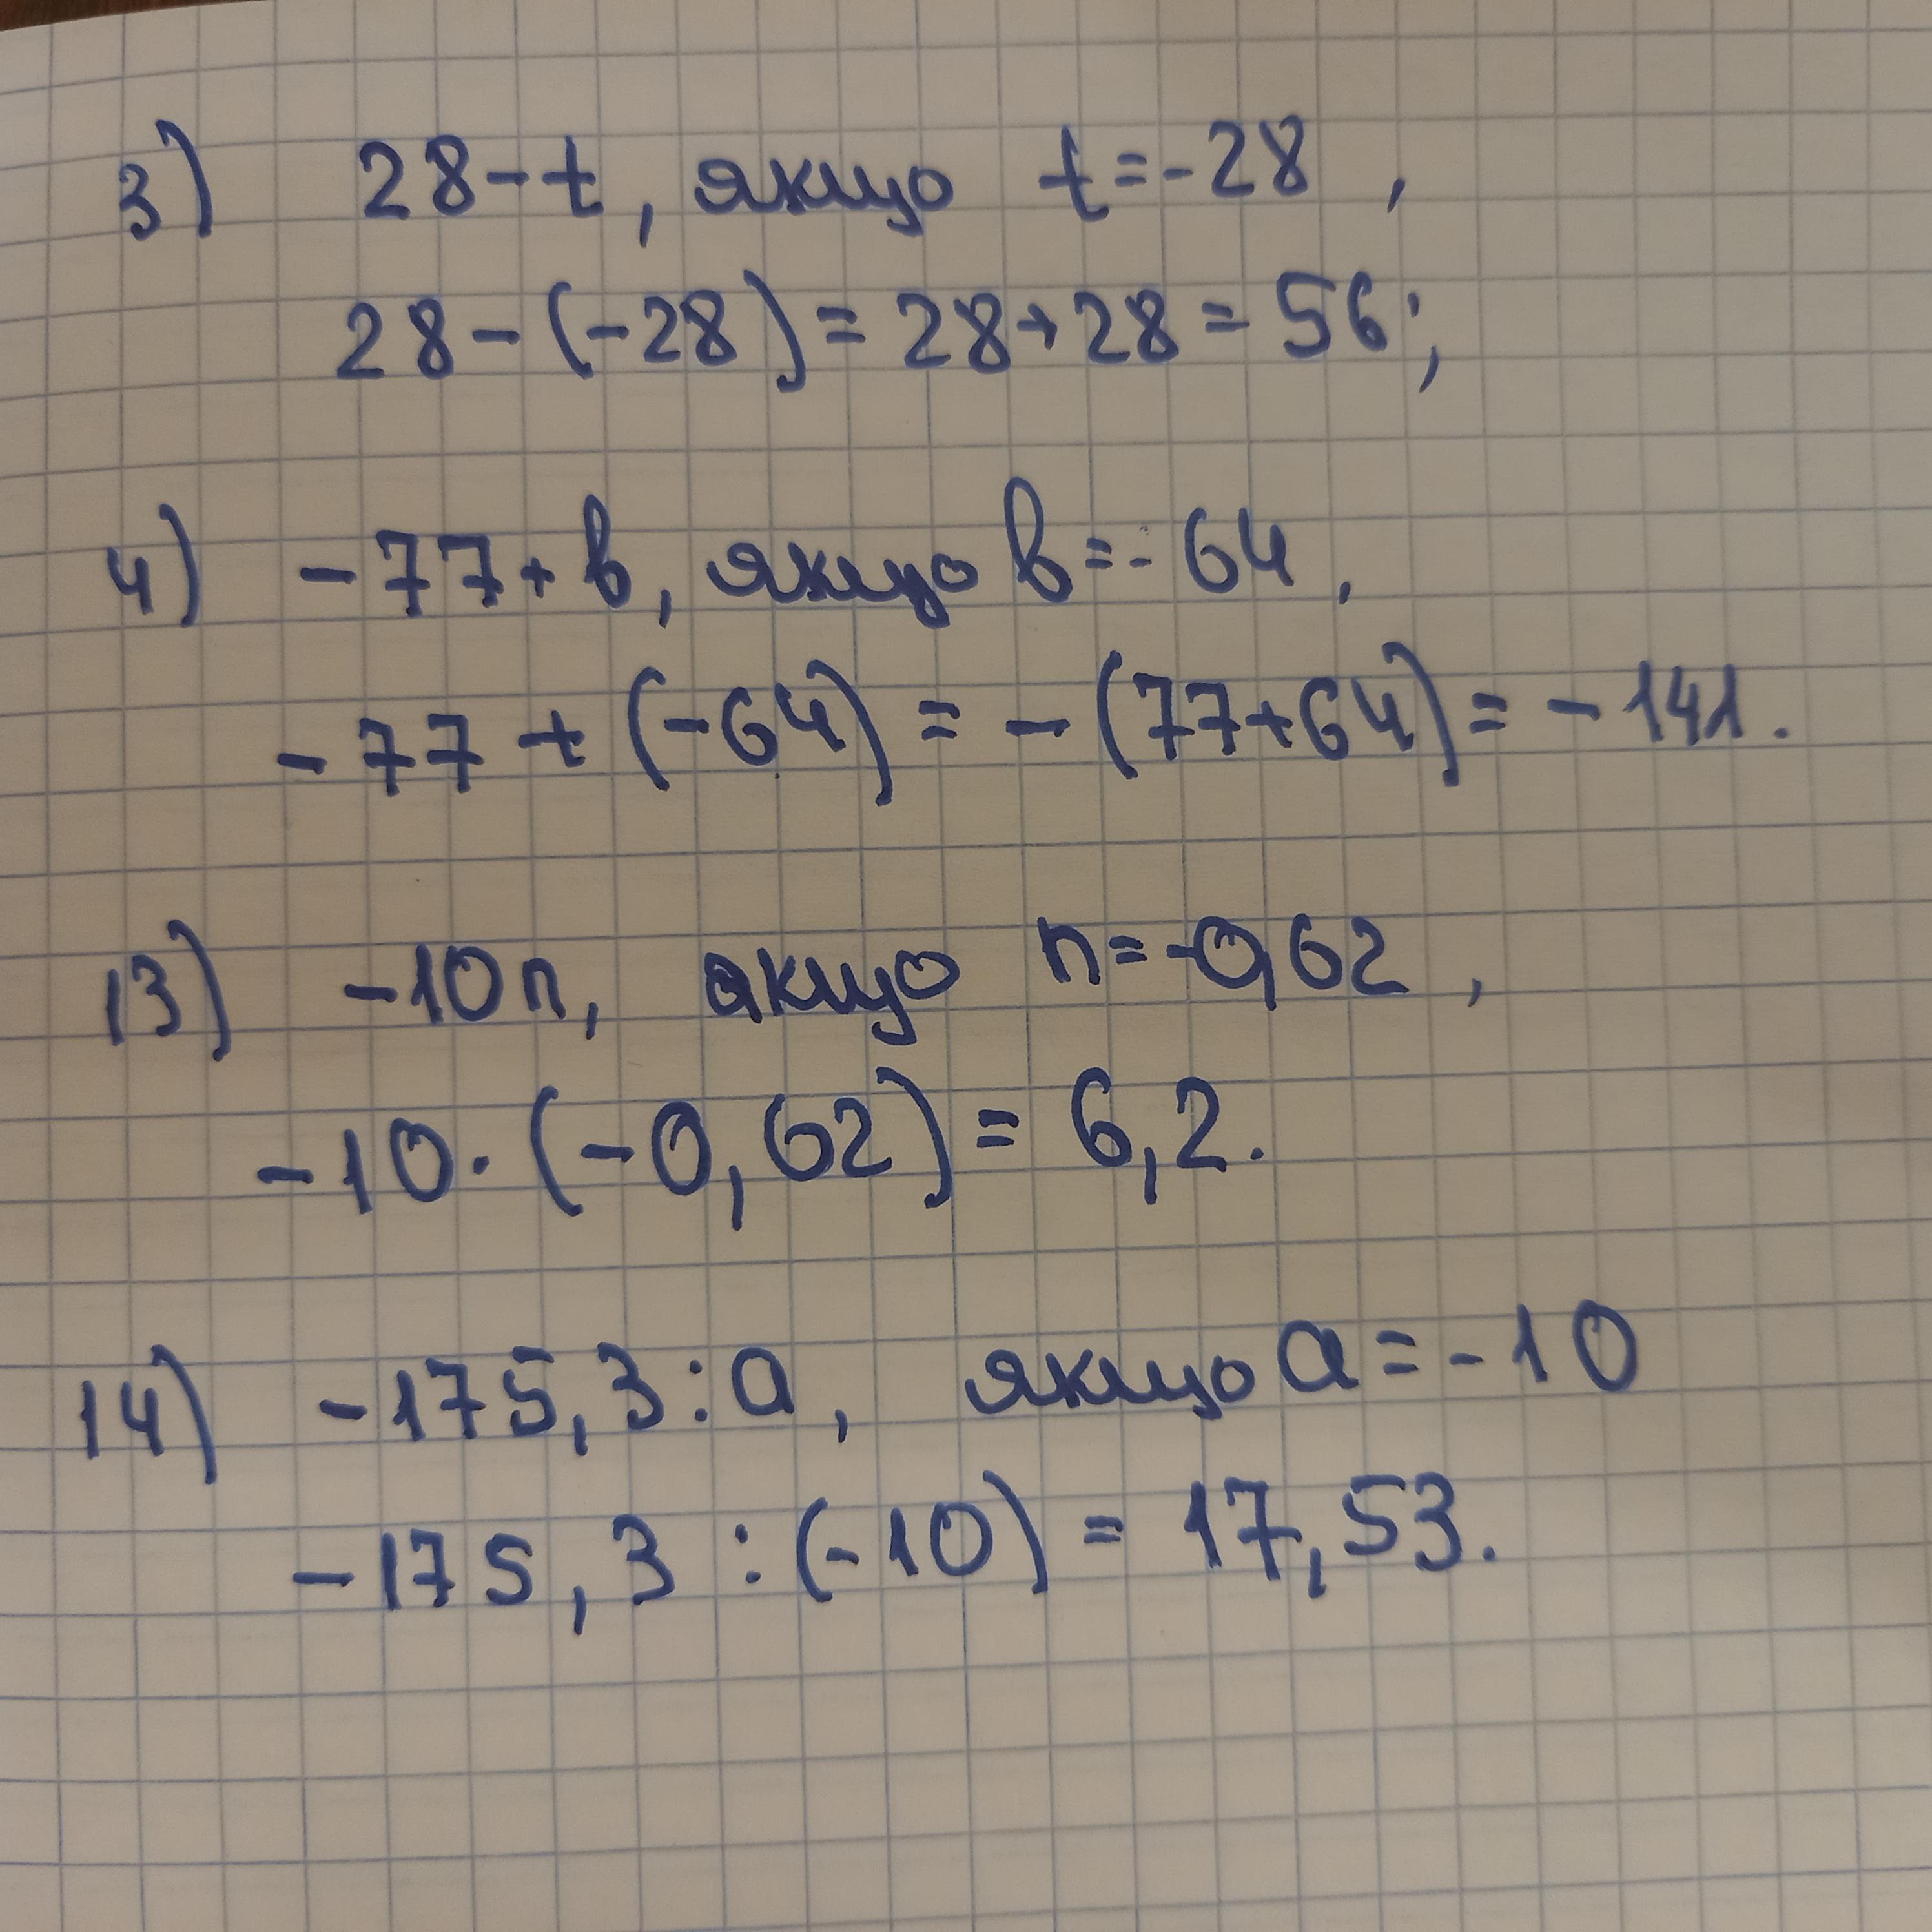 3) 28-t, якщо t=-28,
28-(-28)=28+28=56;
4) -77+b, якщо b=-64,
-77+(-64)=-(77+64)=-141.
13) -10n, якщо n=-0,62,
-10·(-0,62)=6,2.
14) -175,3:a, якщо a=-10
-175,3:(-10)=17,53.